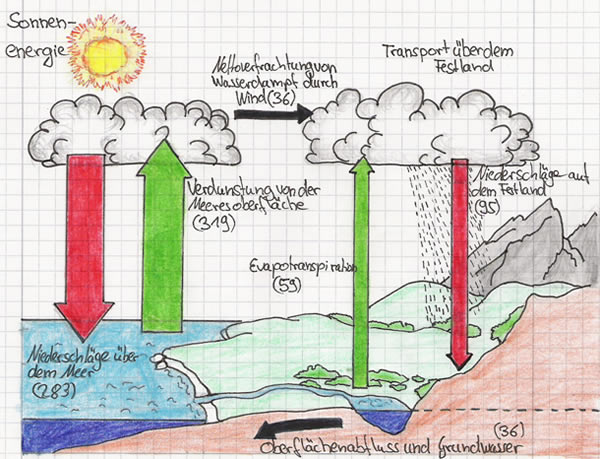 Sonnen-
energie
Nettoverfrachtung von
Wasserdampf durch
Wind (36)
Transport über dem
Festland
Verdunstung von der
Meeresoberfläche
(319)
Niederschläge auf
dem Festland
(95)
Evapotranspiration
(59)
Niederschläge über
dem Meer
(283)
(36)
Oberflächenabfluss und Grundwasser